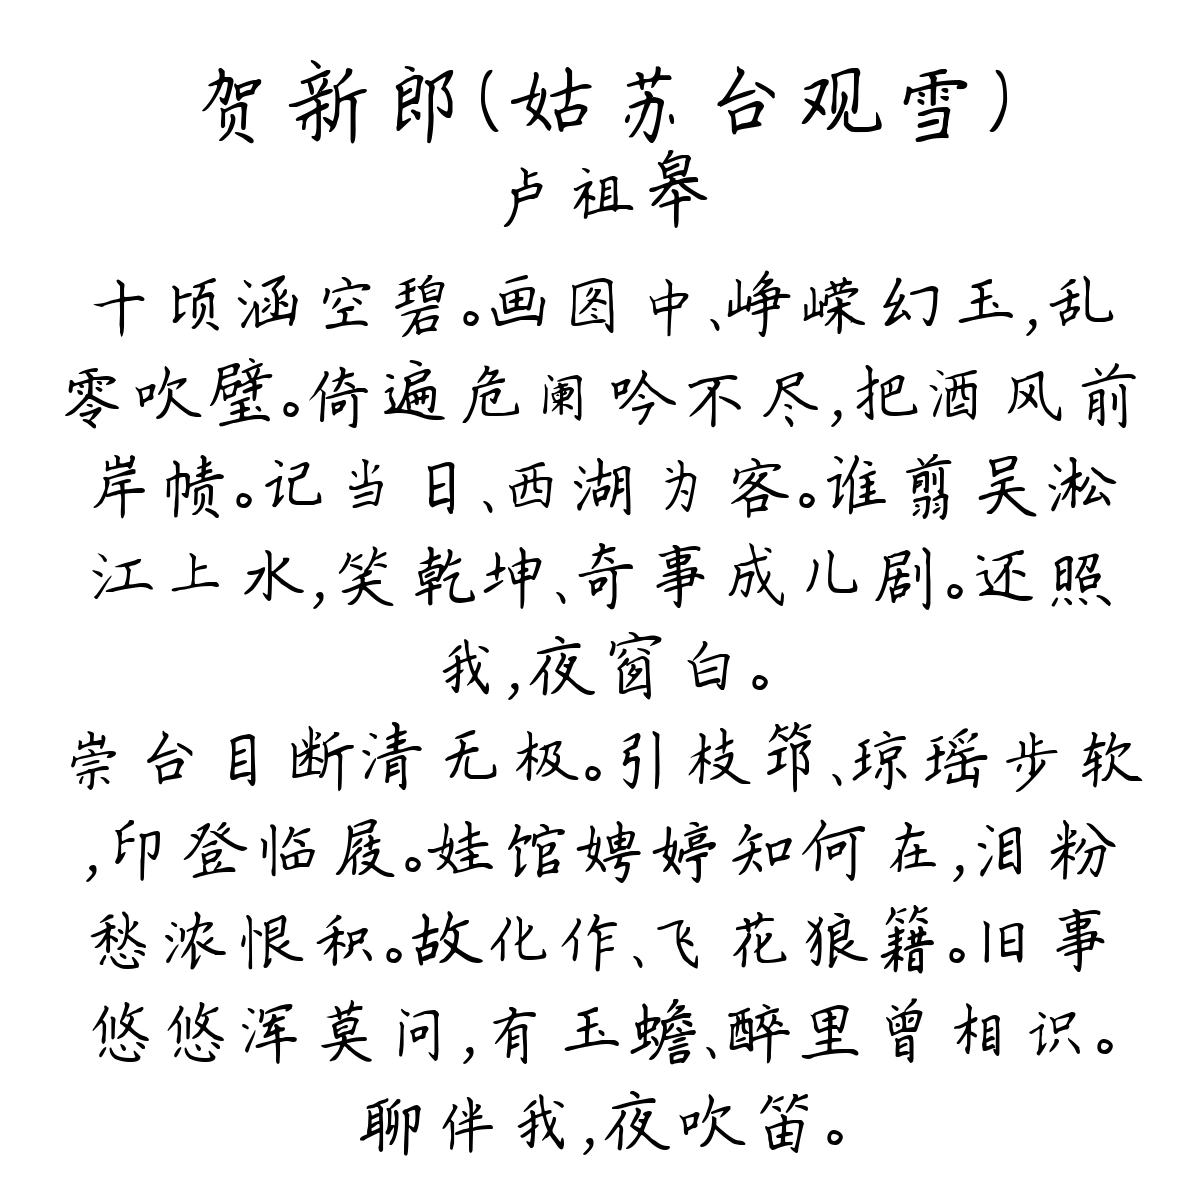 贺新郎(姑苏台观雪)
卢祖皋
十顷涵空碧。画图中、峥嵘幻玉,乱
零吹璧。倚遍危阑吟不尽,把酒风前
岸帻。记当日、西湖为客。谁翦吴淞
江上水,笑乾坤、奇事成儿剧。还照
我,夜窗白。
崇台目断清无极。引枝筇、琼瑶步软
,印登临屐。娃馆娉婷知何在,泪粉
愁浓恨积。故化作、飞花狼籍。旧事
悠悠浑莫问,有玉蟾、醉里曾相识。
聊伴我,夜吹笛。